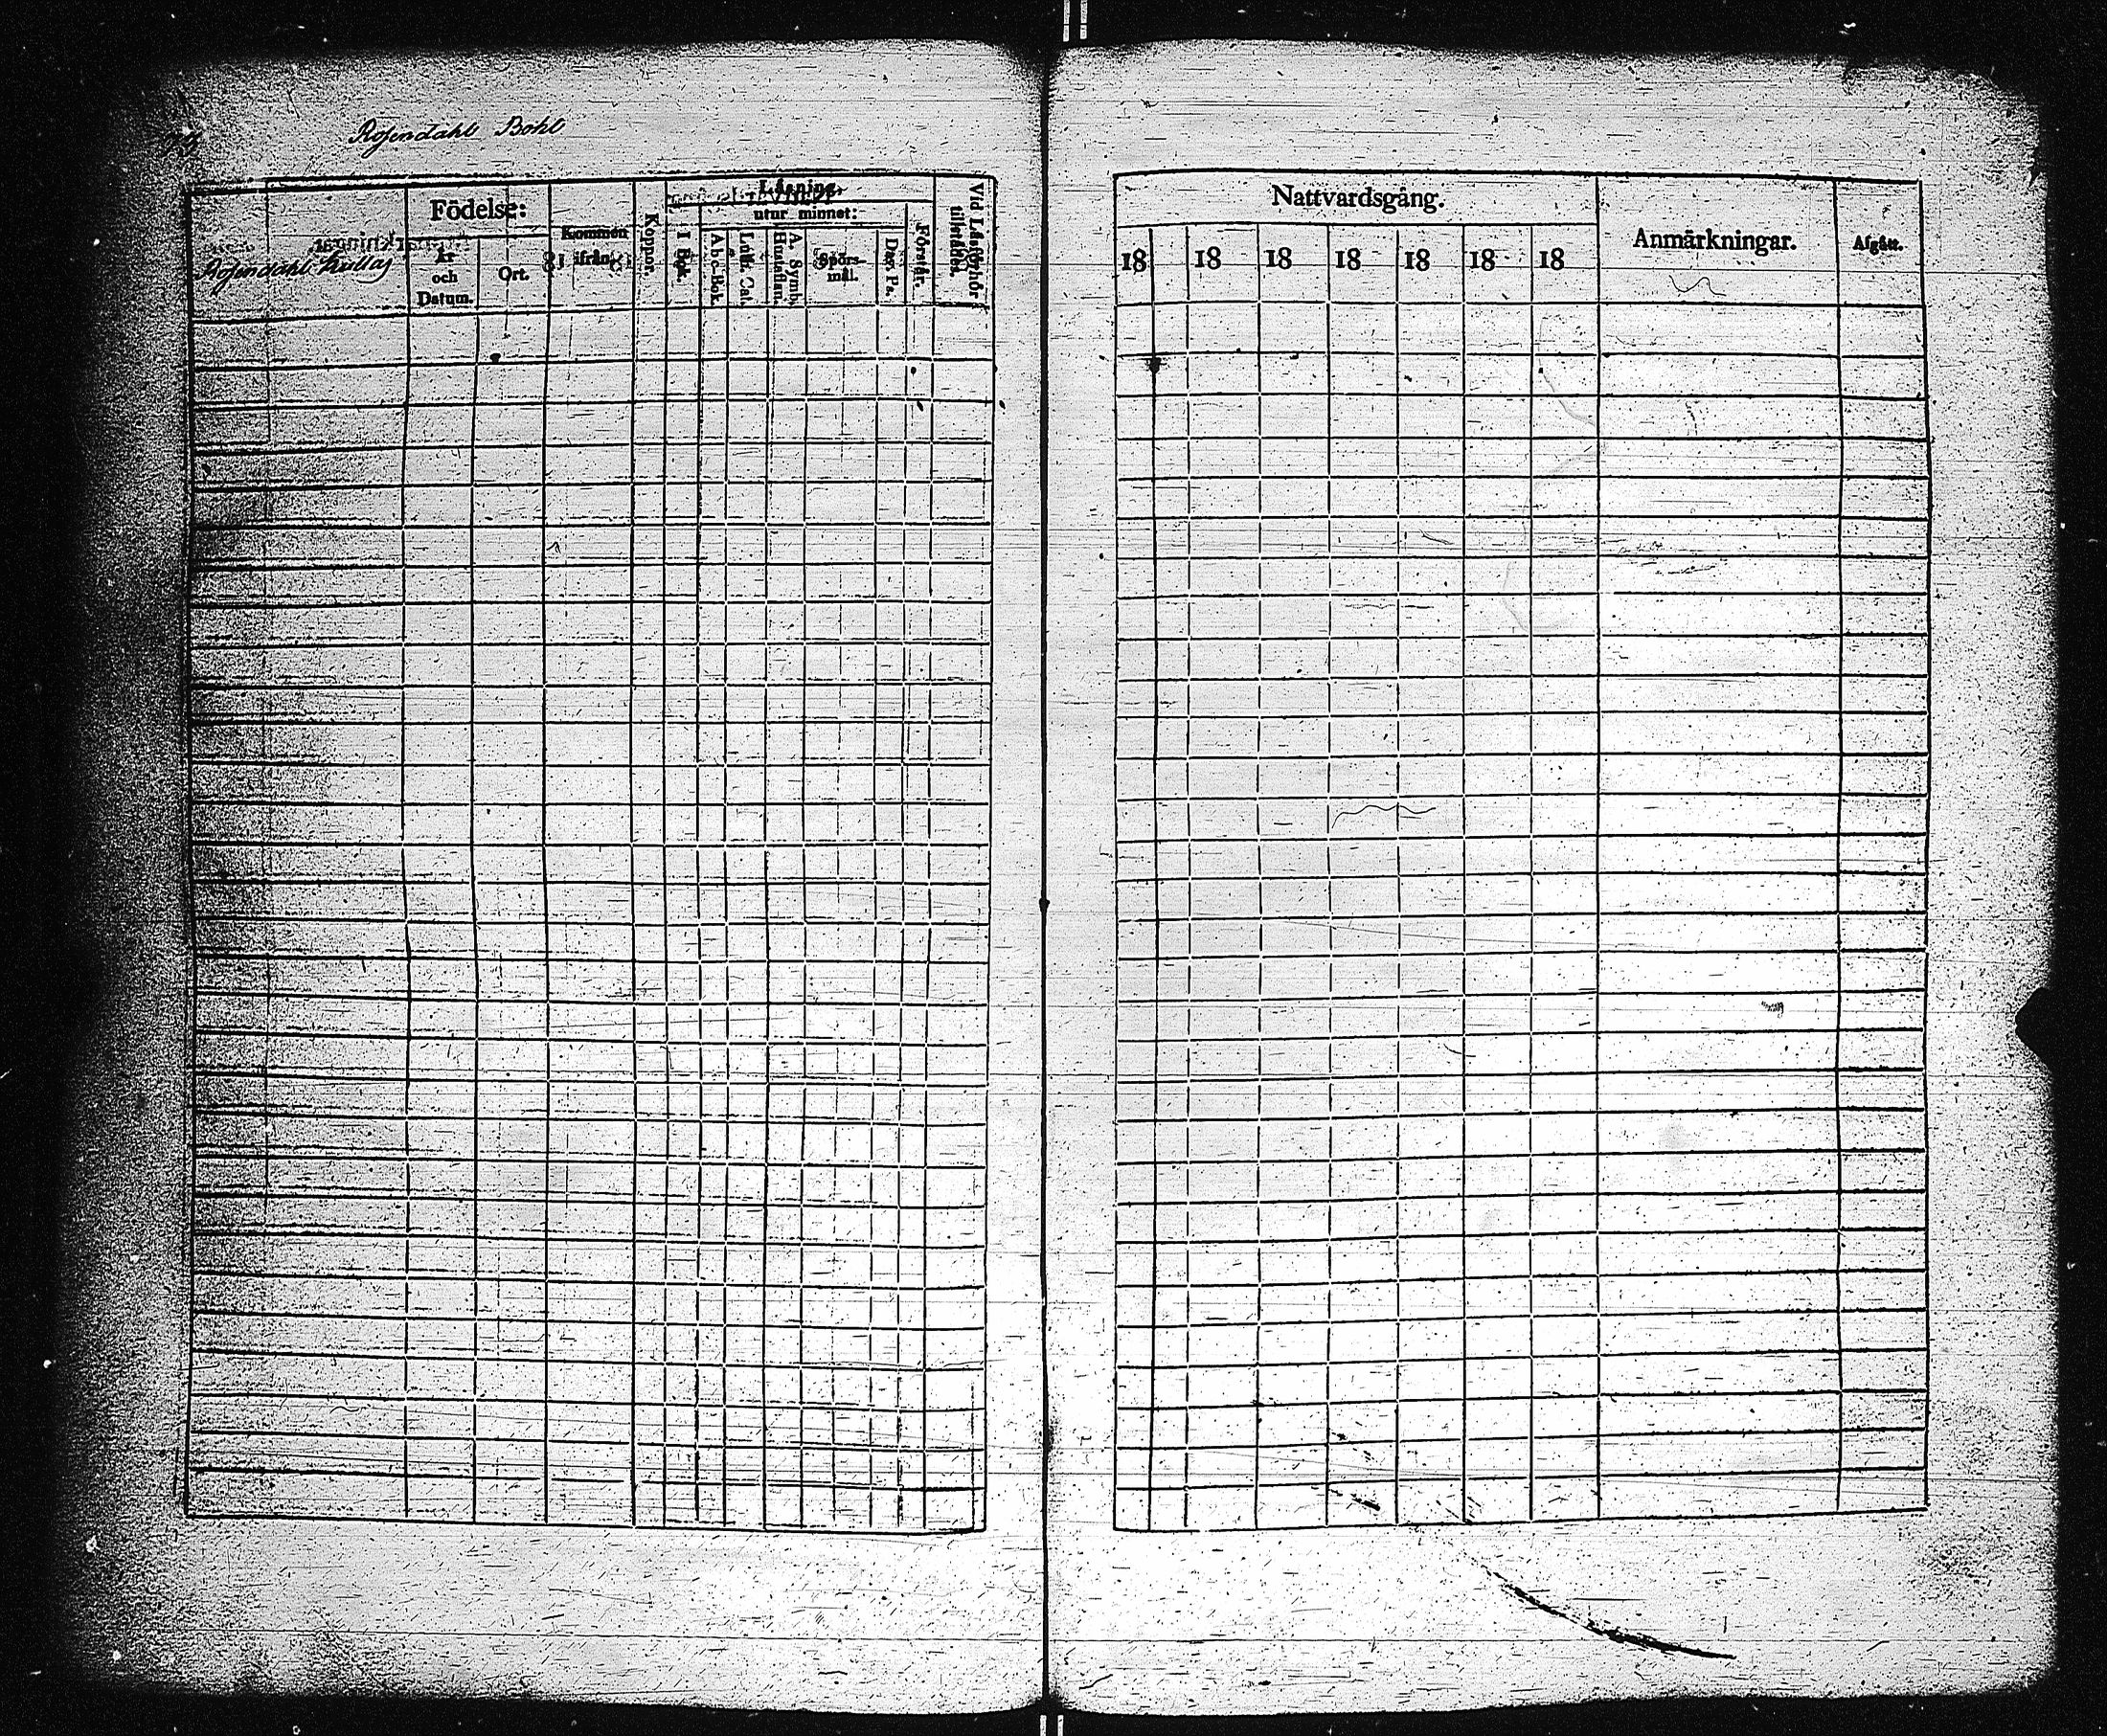 Rosendahl Bohl
Rosendahl Kullas
Födelse:
År och Datum.
Ort.
Kommen ifrån.
Koppor.
Läsning.
I Bok.
utur minnet:
Abc-Bok.
Luth. Cat.
Hustaflan.
A. Symb.
Spörs-mål.
Dav. Ps.
Förstår.
Vid Läsförhör tillstädes.
Nattvardsgång.
18 18 18 18 18 18 18
Anmärkningar.
Afgått.